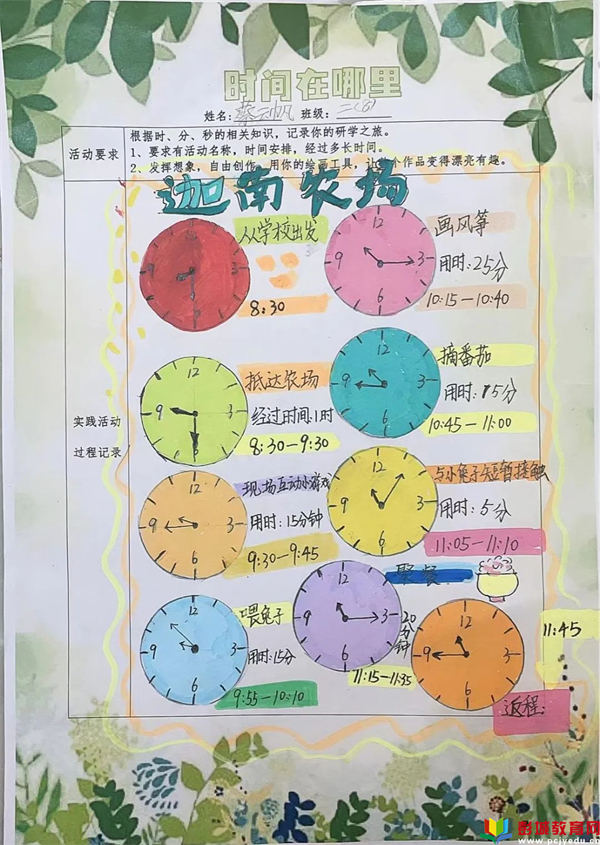 时间在哪里
姓名：蔡云帆 班级：二（6）
活动要求
根据时、分、秒的相关知识，记录你的研学之旅。
1、要求有活动名称，时间安排，经过多长时间。
2、发挥想象，自由创作，用你的绘画工具，让 个作品变得漂亮有趣。
实践活动
过程记录
迦南农场
12 3 6 9
从学校出发
8:30
12 3 6 9
画风筝
用时:25分
10:15—10:40
12 3 6 9
抵达农场
经过时间:1时
8:30-9:30
12 3 6 9
摘番茄
用时:15分
10:45—11:00
12 3 6 9
现场互动小游戏
用时:15分钟
9:30-9:45
12 3 6 9
与小兔子短暂接触
用时:5分
11:05—11:10
12 3 6 9
喂兔子
用时:15分
9:55-10:10
12 3 6 9
聚餐
20分钟
11:15-11:35
12 3 6 9
11:45
返程.
彭城教育网
www.pcjyedu.cn